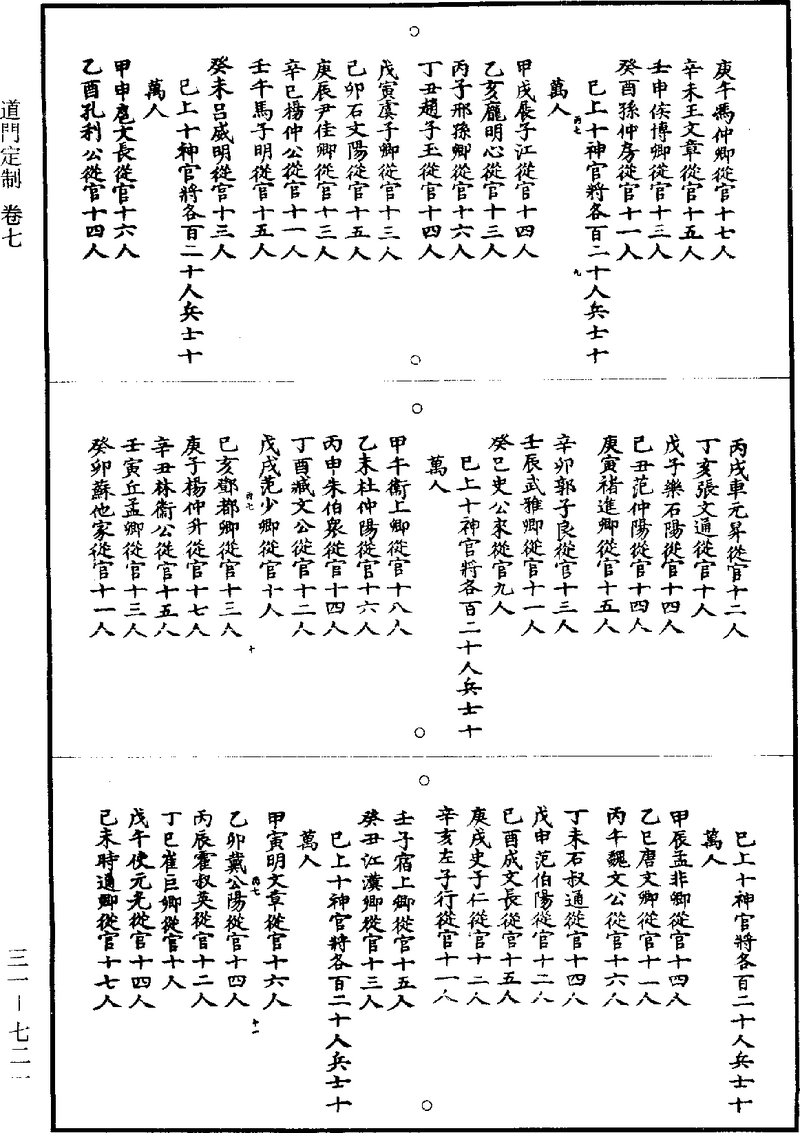 道門定制　卷七
三一—七二一
庚午馮仲卿從官十七人
辛未王文章從官十五人
壬申侯博卿從官十三人
癸酉孫仲房從官十一人
已上十神官將各百二十人兵士十
萬人
丙七
九
甲戌展子江從官十四人
乙亥龐明心從官十三人
丙子邢孫卿從官十六人
丁丑趙子玉從官十四人
戊寅虞子卿從官十三人
己卯石文陽從官十五人
庚辰尹佳卿從官十三人
辛巳楊仲公從官十一人
壬午馬子明從官十五人
癸未呂威明從官十三人
已上十神官將各百二十人兵士十
萬人
甲申扈文長從官十六人
乙酉孔利公從官十四人
丙戌車元昇從官十二人
丁亥張文通從官十人
戊子樂石陽從官十四人
己丑范仲陽從官十四人
庚寅褚進卿從官十五人
辛卯郭子良從官十三人
壬辰武雅卿從官十一人
癸巳史公來從官九人
已上十神官將各百二十人兵士十
萬人
甲午衞上卿從官十八人
乙未杜仲陽從官十六人
丙申朱伯衆從官十四人
丁酉臧文公從官十二人
戊戌范少卿從官十人
丙七
十
己亥鄧都卿從官十三人
庚子楊仲升從官十七人
辛丑林衞公從官十五人
壬寅丘孟卿從官十三人
癸卯蘇他家從官十一人
已上十神官將各百二十人兵士十
萬人
甲辰孟非卿從官十四人
乙巳唐文卿從官十一人
丙午魏文公從官十六人
丁未石叔通從官十四人
戊申范伯陽從官十二人
己酉成文長從官十五人
庚戌史子仁從官十二人
辛亥左子行從官十一人
壬子宿上卿從官十五人
癸丑江漢卿從官十三人
已上十神官將各百二十人兵士十
萬人
甲寅明文章從官十六人
丙七
十一
乙卯戴公陽從官十四人
丙辰霍叔英從官十二人
丁巳崔巨卿從官十人
戊午使元光從官十四人
己未時通卿從官十七人